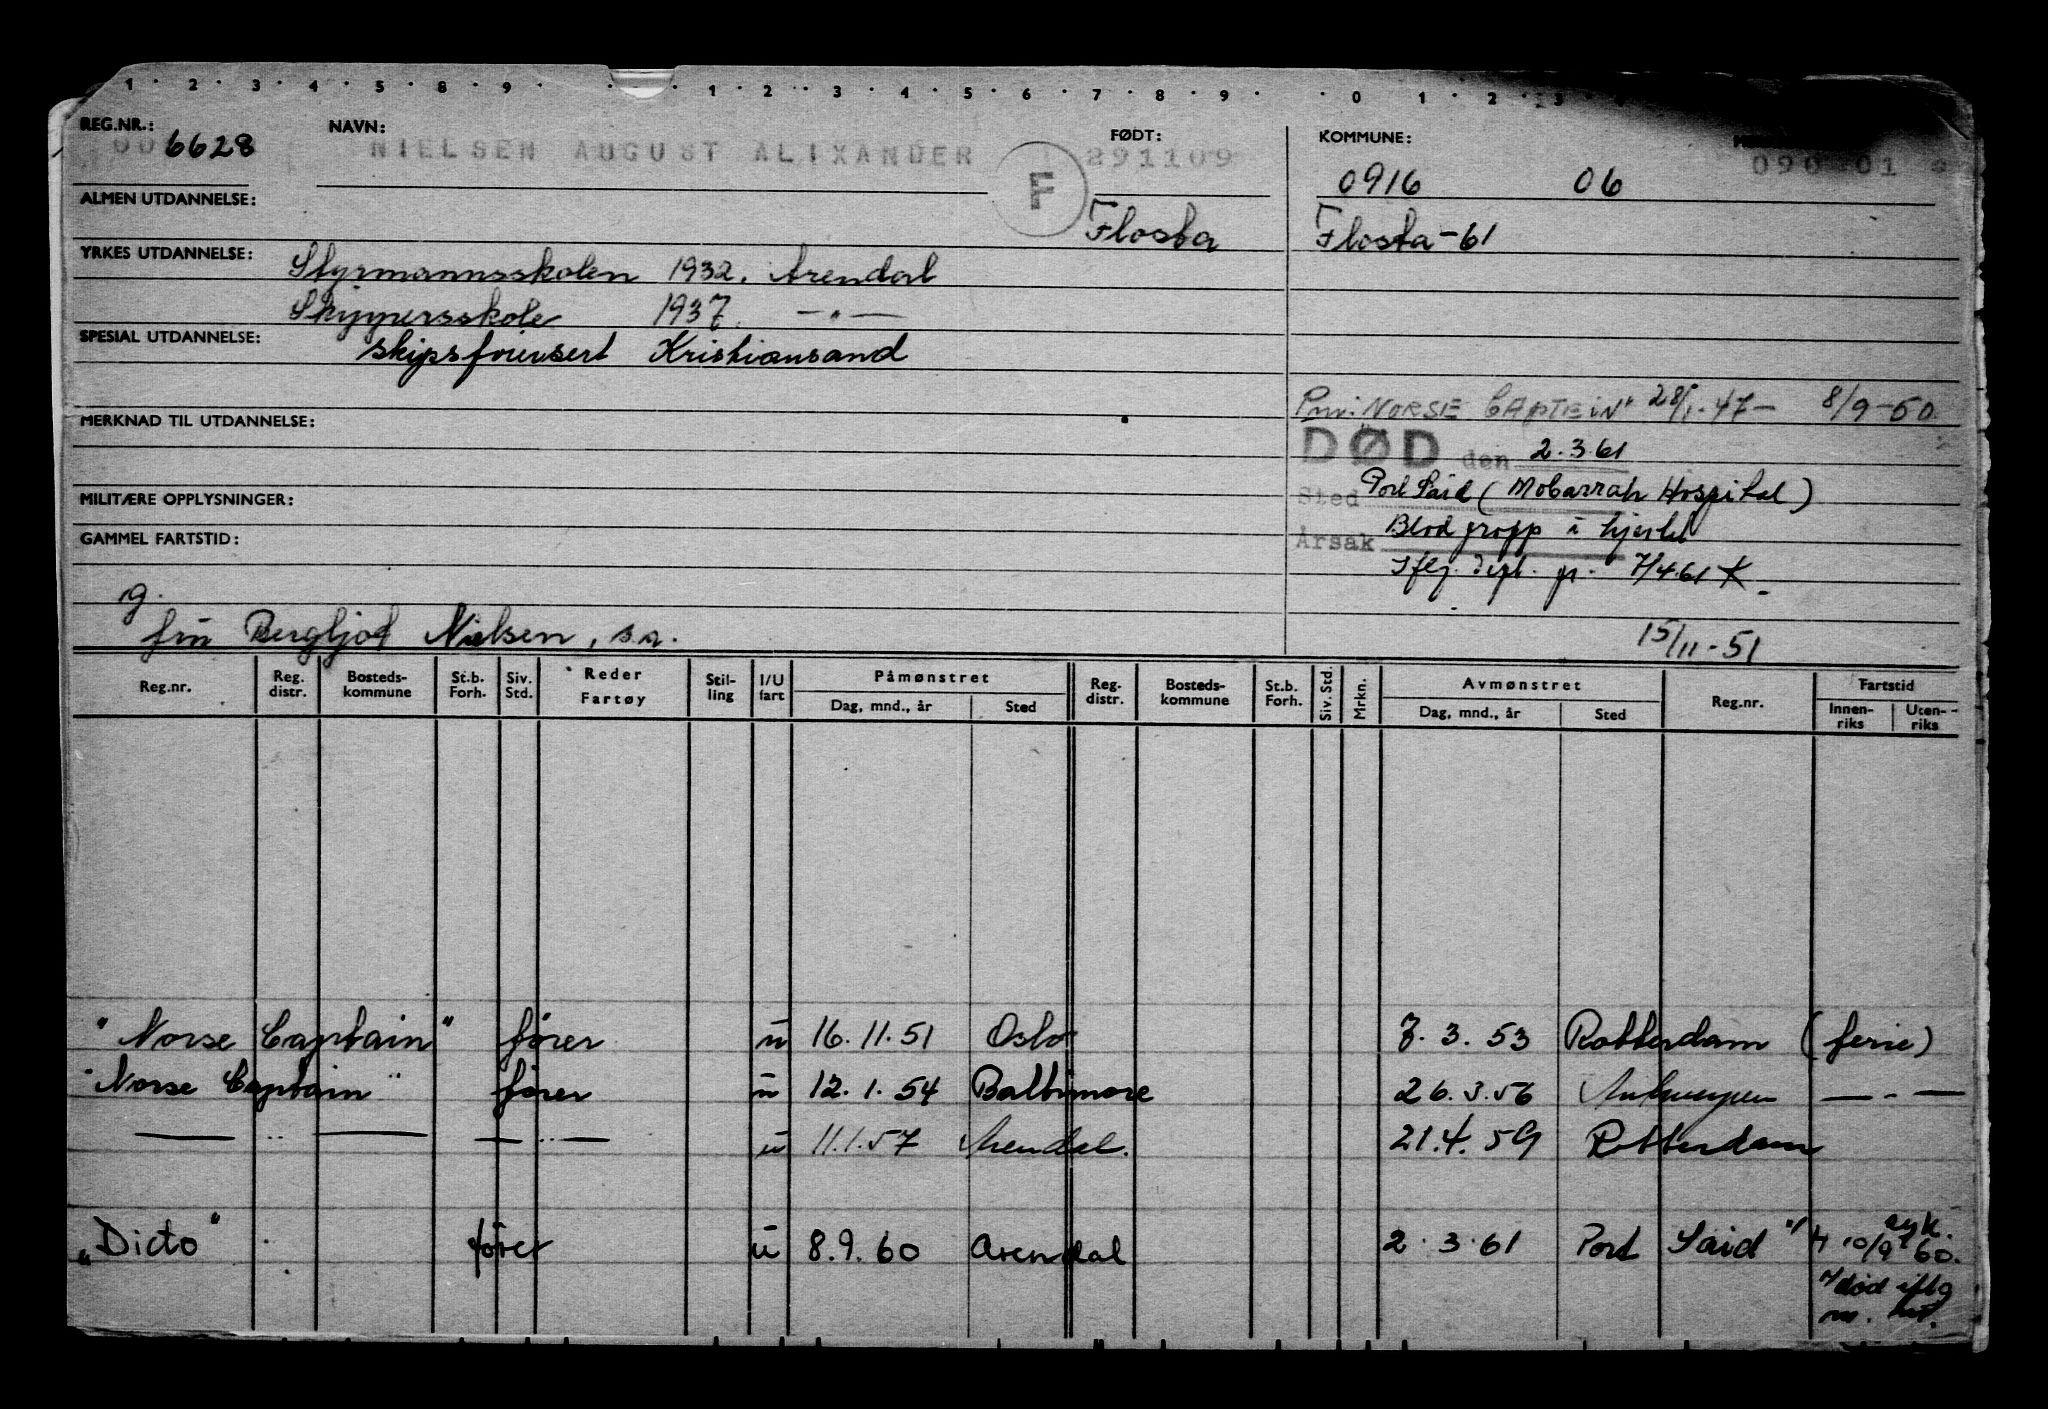 1 · 2 · 3 · 4 · 5 · 8 · 9 · 1 · 2 · 3 · 4 · 5 · 6 · 7 · 8 · 9 · 0 · 1 · 2 · 3
REG.NR.: NAVN: FØDT: KOMMUNE:
6628 NIELSEN AUGUST ALIXANDER F 291109 0916 06 090 01
ALMEN UTDANNELSE: Flosta Flosta-61
YRKES UTDANNELSE: Styrmannsskolen 1932. Arendal
Skipperskole 1937. — " —
SPESIAL UTDANNELSE: skipsførersert Kristiansand
"NORSE CAPTEIN" 28/1-47- 8/9-50
MERKNAD TIL UTDANNELSE:
DØD den 2.3.61
Sted Port Said (Mobarrah Hospital)
MILITÆRE OPPLYSNINGER:
Årsak Blodpropp i hjertet
GAMMEL FARTSTID:
7/4 61
g.
fru Bergljot Nielsen, s.a. 15/11-51
Reg.nr. Reg. distr. Bosteds- kommune St.b. Forh. Siv. Std. Reder Fartøy Stil- ling I/U fart Påmønstret Dag, mnd., år Sted Reg. distr. Bosteds- kommune St.b. Forh. Siv. Std. Mrkn. Avmønstret Dag, mnd., år Sted Reg.nr. Fartstid Innen- riks Uten- riks
"Norse Captain" fører u 16.11.51 Oslo 7.3.53 Rotterdam (ferie)
"Norse Captain" fører u 12.1.54 Baltimore 26.3.56 Antwerpen — " —
— " — — " — u 11.1.57 Arendal. 21.4.59 Rotterdam
"Dicto" fører u 8.9.60 Arendal 2.3.61 Port Said 10/9 60.
død